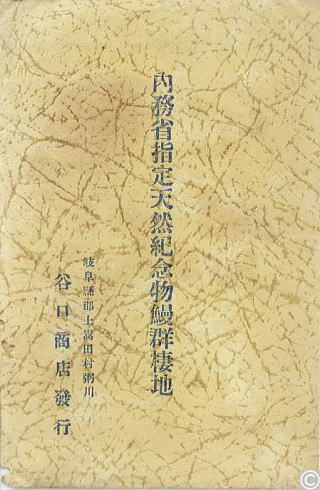 内務省指定天然紀念物鰻群棲地
岐阜縣郡上嵩田村粥川
谷口商店發行
©